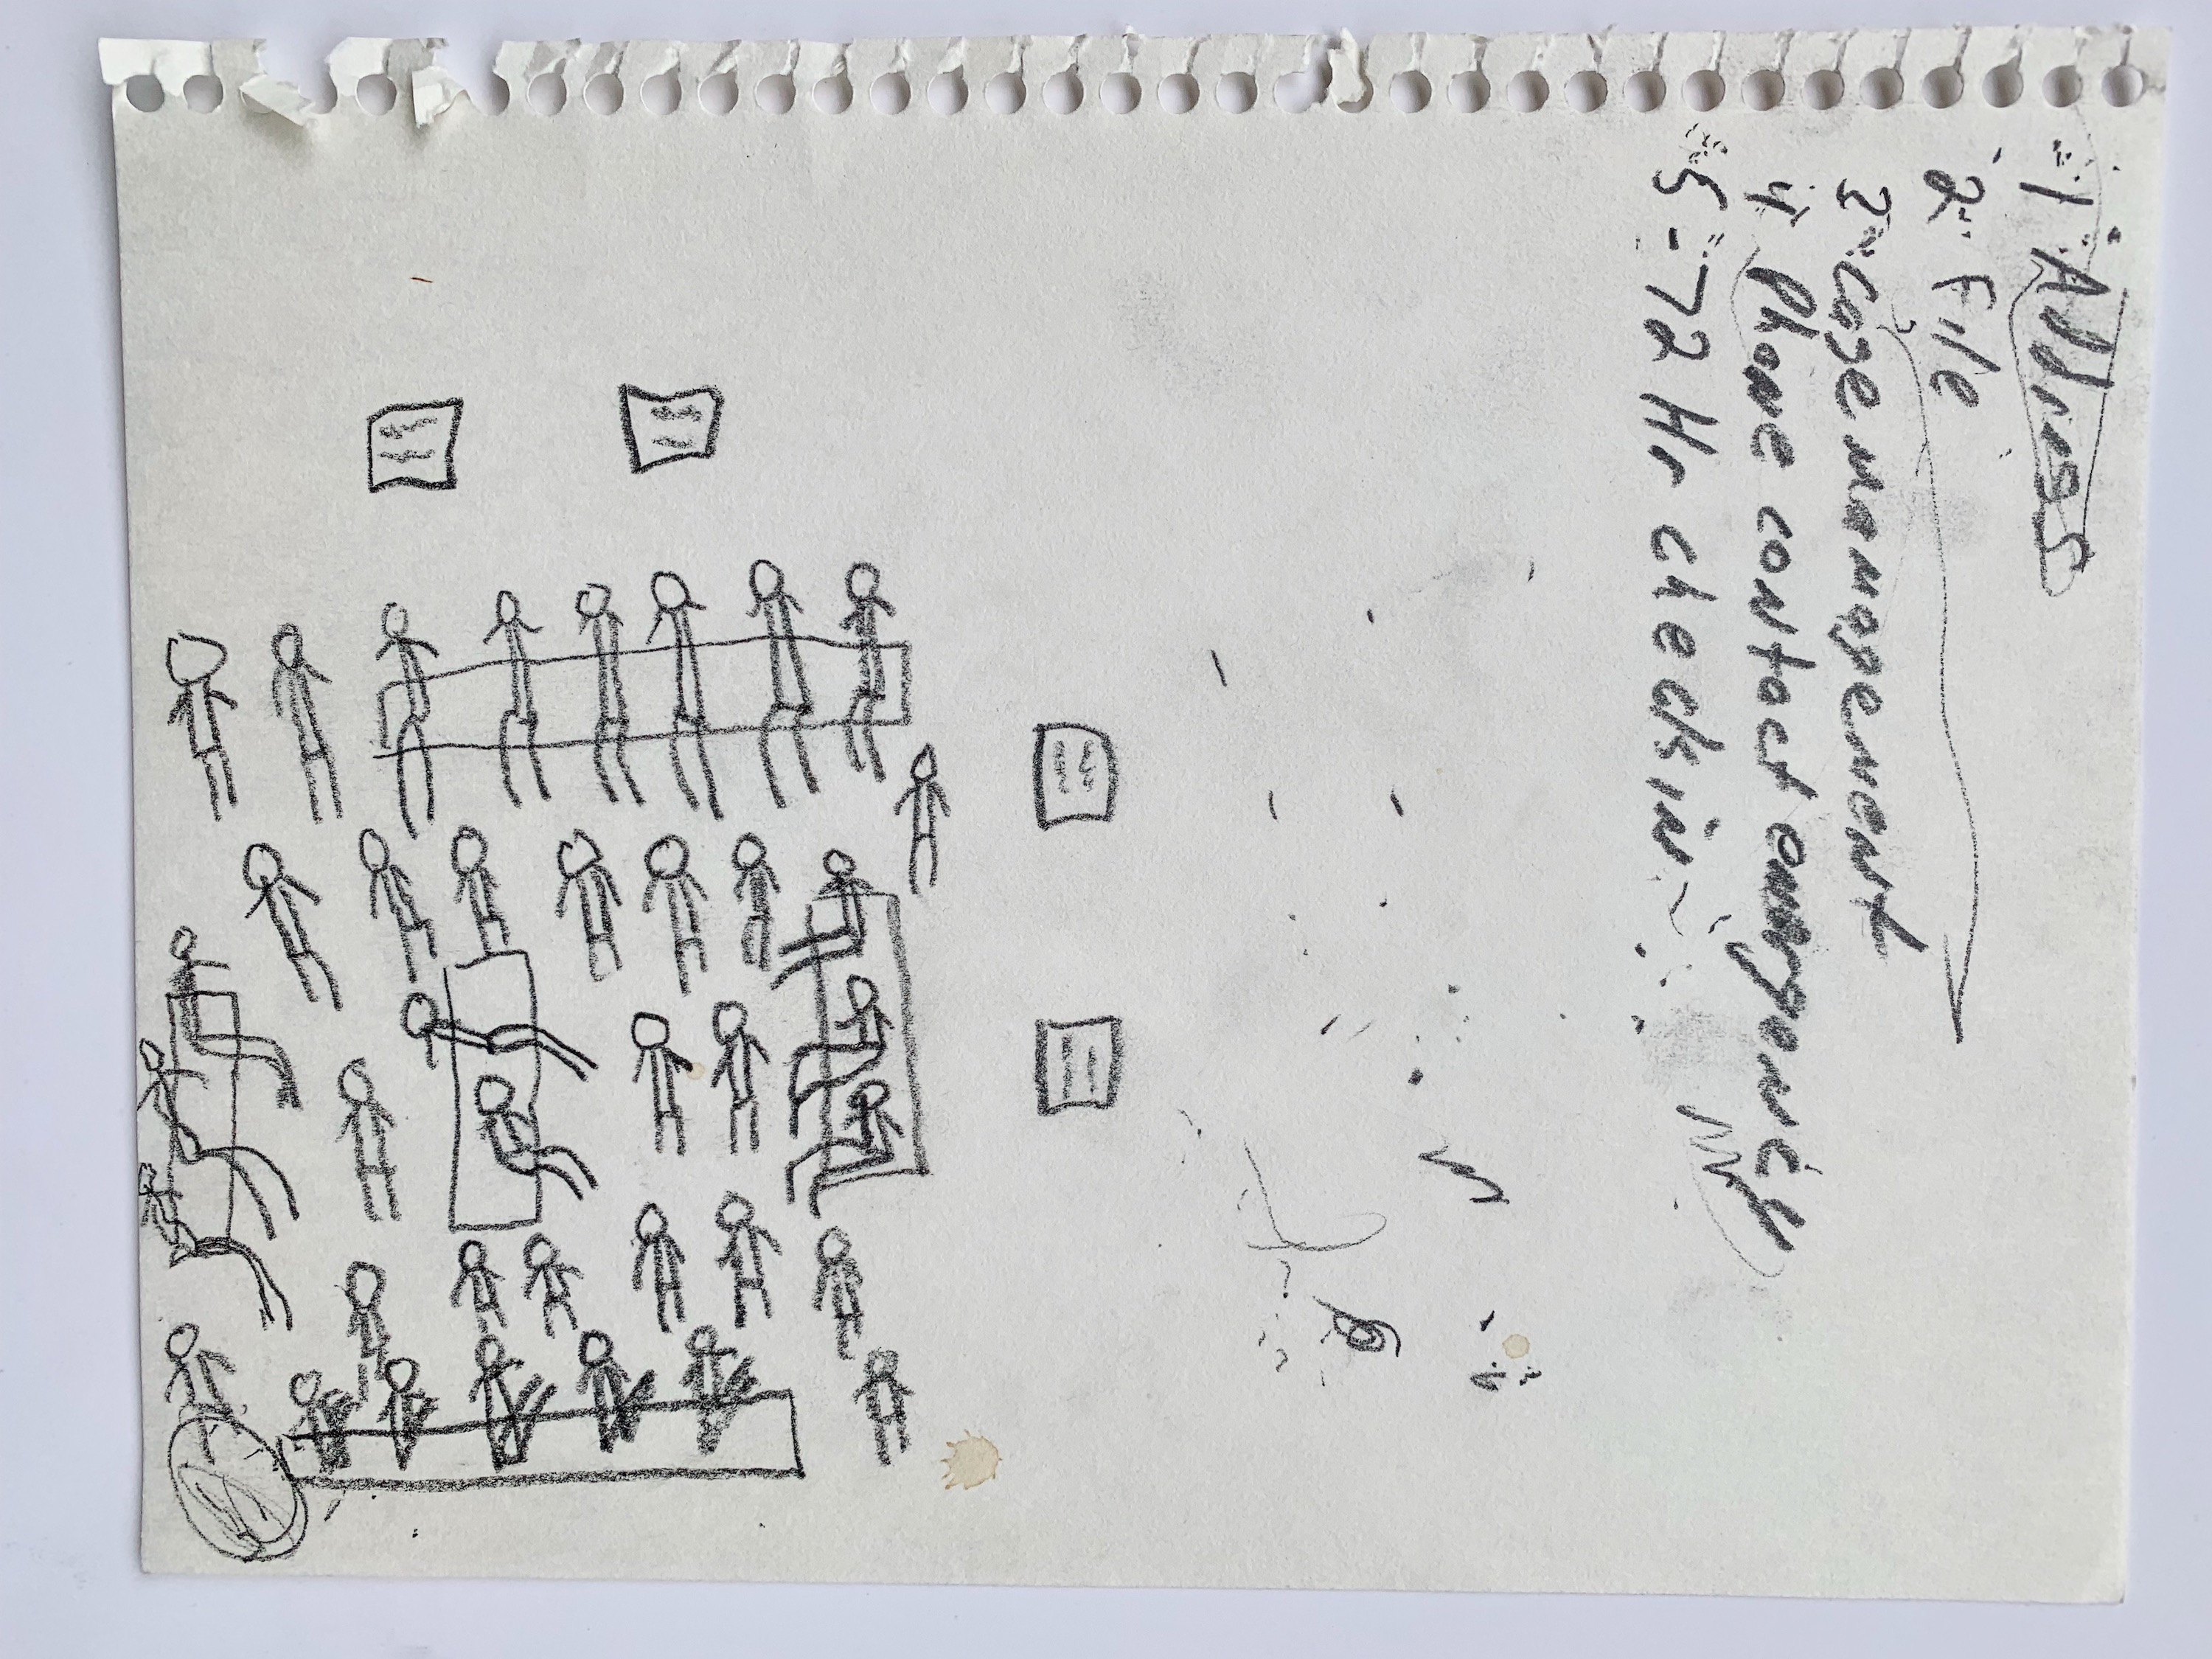 1 AddresS
2 File
3 Case manugement
4 Phone contact emergency
5 - 72 Hr check in